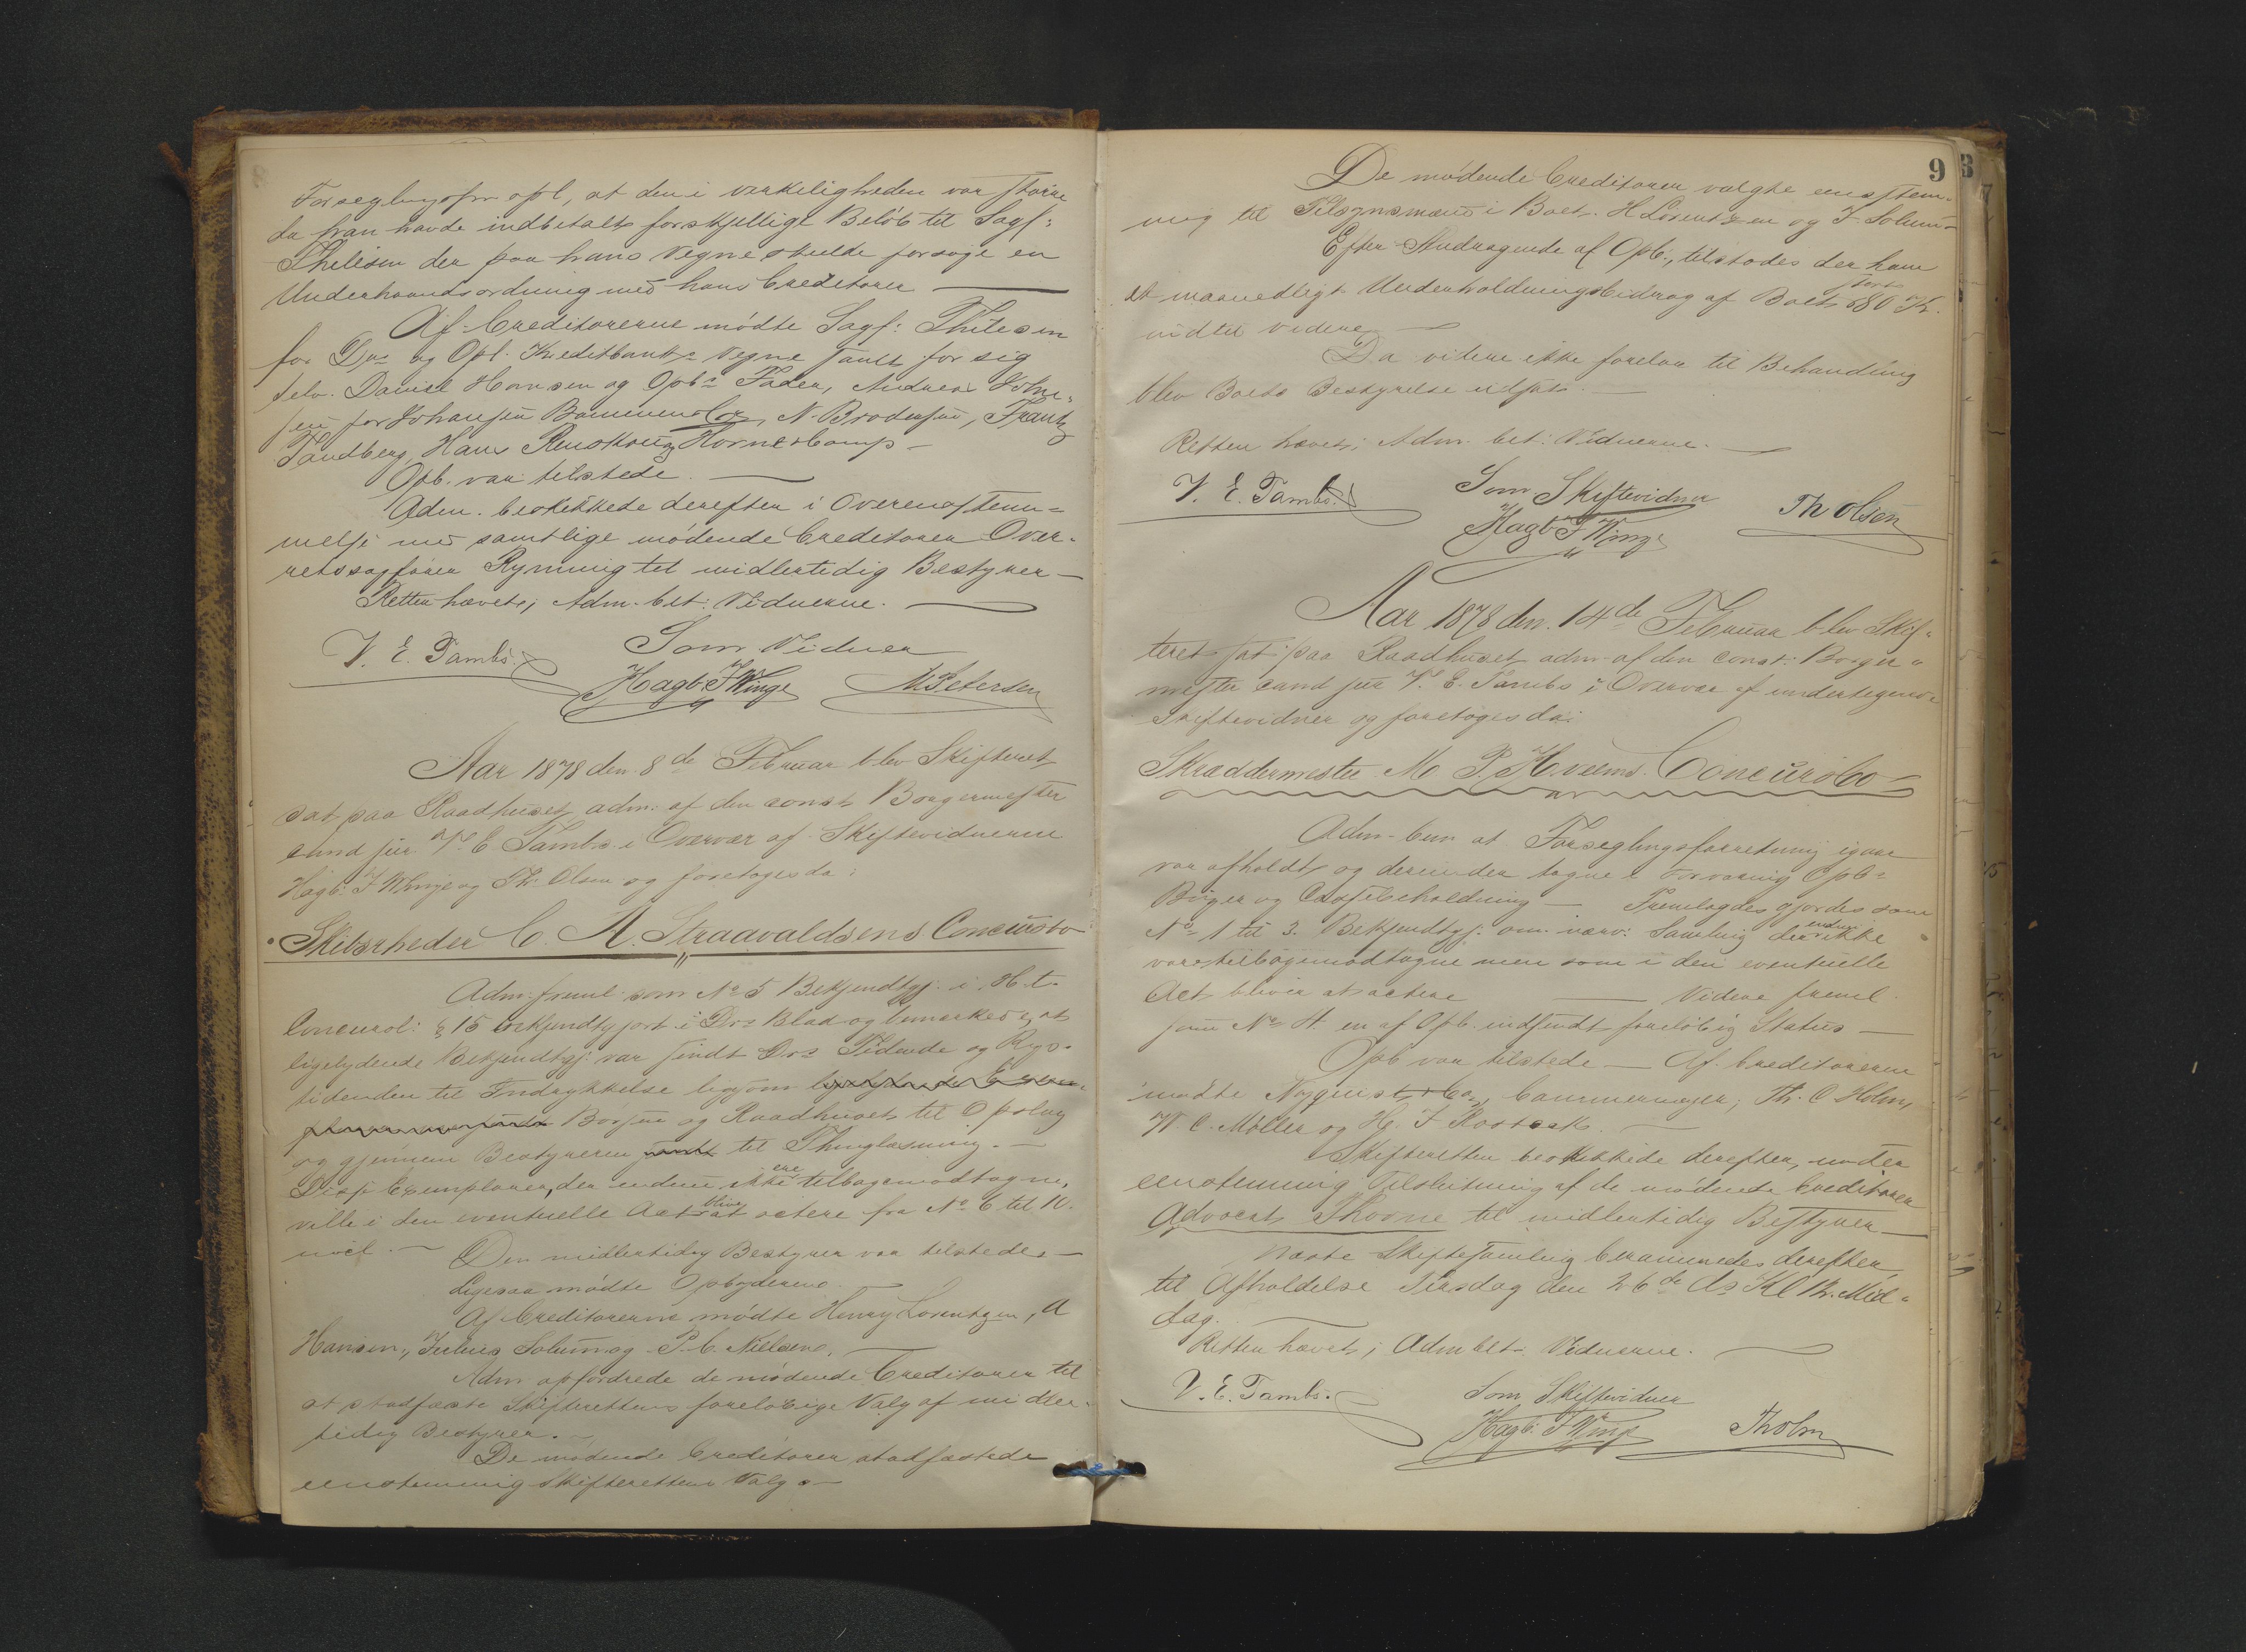 Forseglingsfor. opl, at den i verkeligheden var større
da han havde indbetalt forskjellige Beløb til Sagf:
Thilesen der paa hans Vegne skulde forsøge en
Underhaandsordning med hans Creditorer
Af Creditorerne mødte Sagf: Thilesen
for Dr: og Opl. Kreditbanks Vegne samt for sig
selv. Daniel Hansen og Opb:s Fader, Andreas Holm-
sen for Johansen Bommen & Co, N. Brodersen, Frantz
Tandberg, Hans Renskoug, Hornescamp
Opb. var tilstede.
Adm. beskikkede derefter i Overensstem-
melse med samtlige mødende Creditorer Over-
retssagfører Rynning til midlertidig Bestyrer
Retten hævet; Adm. bet: Vidnerne.
V. E. Tambs.
Som Vidner
Hagb: F Winge
M Petersen
Aar 1878 den 8de Februar blev Skifteret
sat paa Raadhuset, adm: af den const. Borgermester
cand jur. V. E Tambs i Overvær af Skiftevidnerne
Hagb: F Winge og Th: Olsen og foretoges da:
Skibsrheder C. A. Straavaldsens Concursbo
Adm: freml: som No 5 Bekjendtgj: i H. t.
Concursl: § 15 bekjendtgjort i Drs Blad og bemærkede, at
ligelydende Bekjendtgj: var sendt Drs Tidende og Rigs-
tidenden til Indrykkelse ligesom
Børsen og Raadhuset til Opslag
og gjennem Bestyreren sendt til Thinglæsning.
Disse Exemplarer, der endnu ikke ere tilbagemodtagne,
ville i den eventuelle Act blive at actere fra No 6 til 10.
incl.
Den midlertidig Bestyrer var tilstede
Ligesaa mødte Opbyderne.
Af Creditorerne mødte Henry Lorentzen, A
Hansen, Julius Solum og P. C. Nielsen.
Adm opfordrede de mødende Creditorer til
at stadfæste Skifterettens foreløbige Valg af midler-
tidig Bestyrer.
De mødende Creditorer stadfæstede
eenstemmig Skifterettens Valg
9
3
De mødende Creditorer valgte eenstem-
mig til Tilsynsmænd i Boet H Lorentzen og J. Solum
Efter Andragende af Opb:, tilstodes der ham
et maanedligt Underholdningsbidrag af Boet stort 80 Kr.
indtil videre
Da videre ikke forelaa til Behandling
blev Boets Bestyrelse udsat.
Retten hævet; Adm. bet: Vidnerne.
V. E. Tambs.
Som Skiftevidner
Hagb: F Winge
Th Olsen
Aar 1878 den 14de Februar blev Skif-
teret sat paa Raadhuset adm. af den const: Borger-
mester cand jur V. E. Tambs i Overvær af undertegnede
Skiftevidner og foretoges da:
Skræddermester M P. Hveems Concursbo
Adm. bem at Forseglingsforretning igaar
var afholdt, og derunder tagne i Forvaring Opb:s
Bøger og Cassebeholdning Fremlagdes gjordes som
No 1 til 3. Bekjendtgj: om nærv: Samling der endnu ikke
vare tilbagemodtagne men som i den eventuelle
Act bliver at actere Videre freml
som No 4. en af Opb. indsendt foreløbig Status
Opb var tilstede Af Creditorerne
mødte Nyquist & Co, Cammermeyer, Th. C Holm,
W. C. Møller og H. J Rostock.
Skifteretten beskikkede derefter, under
eenstemmig Tilslutning af de mødende Creditorer
Advocat Thorne til midlertidig Bestyrer
Næste Skiftesamling berammedes derefter
til Afholdelse Tirsdag den 26de ds Kl 12 Mid-
dag.
Retten hævet; Adm bet: Vidnerne.
V. E. Tambs.
Som Skiftevidner
Hagb: F Winge
Th Olsen